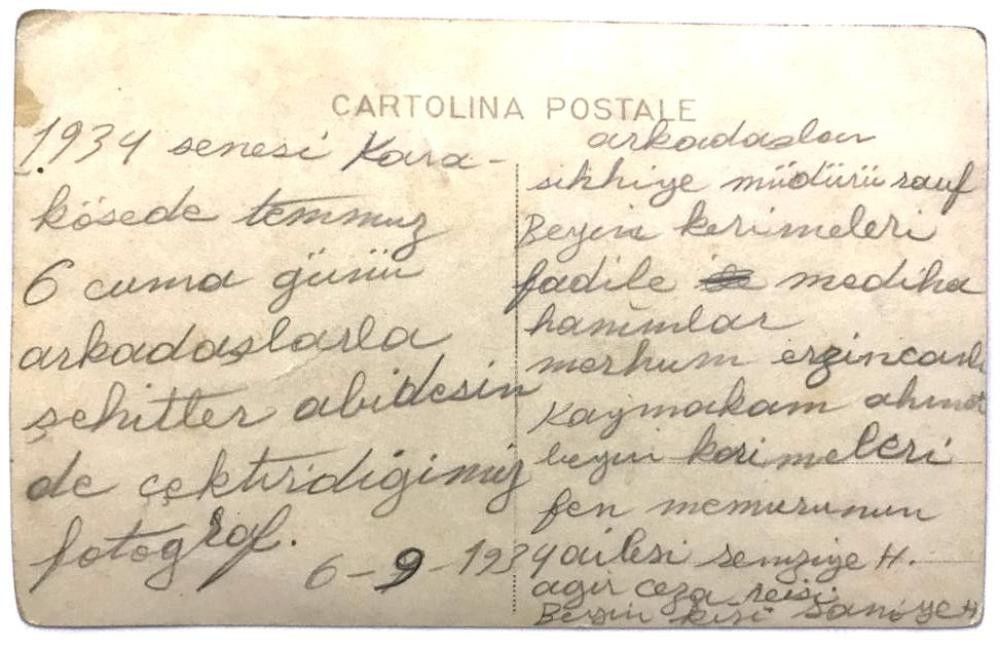 CARTOLINA POSTALE
1934 senesi Kara-
kösede temmuz
6 cuma günü
arkadaşlarla
şehitler abidesin
de çektirdiğimiz
fotoğraf.
6-9-1934
arkadaşları
sıhhiye müdürü rauf
Beyin kerimeleri
fadile mediha
hanımlar
merhum erzincanlı
Kaymakam ahmet
beyin kerimeleri
fen memurunun
ailesi semziye H.
agir ceza reisi
Beyin kızı Saniye H